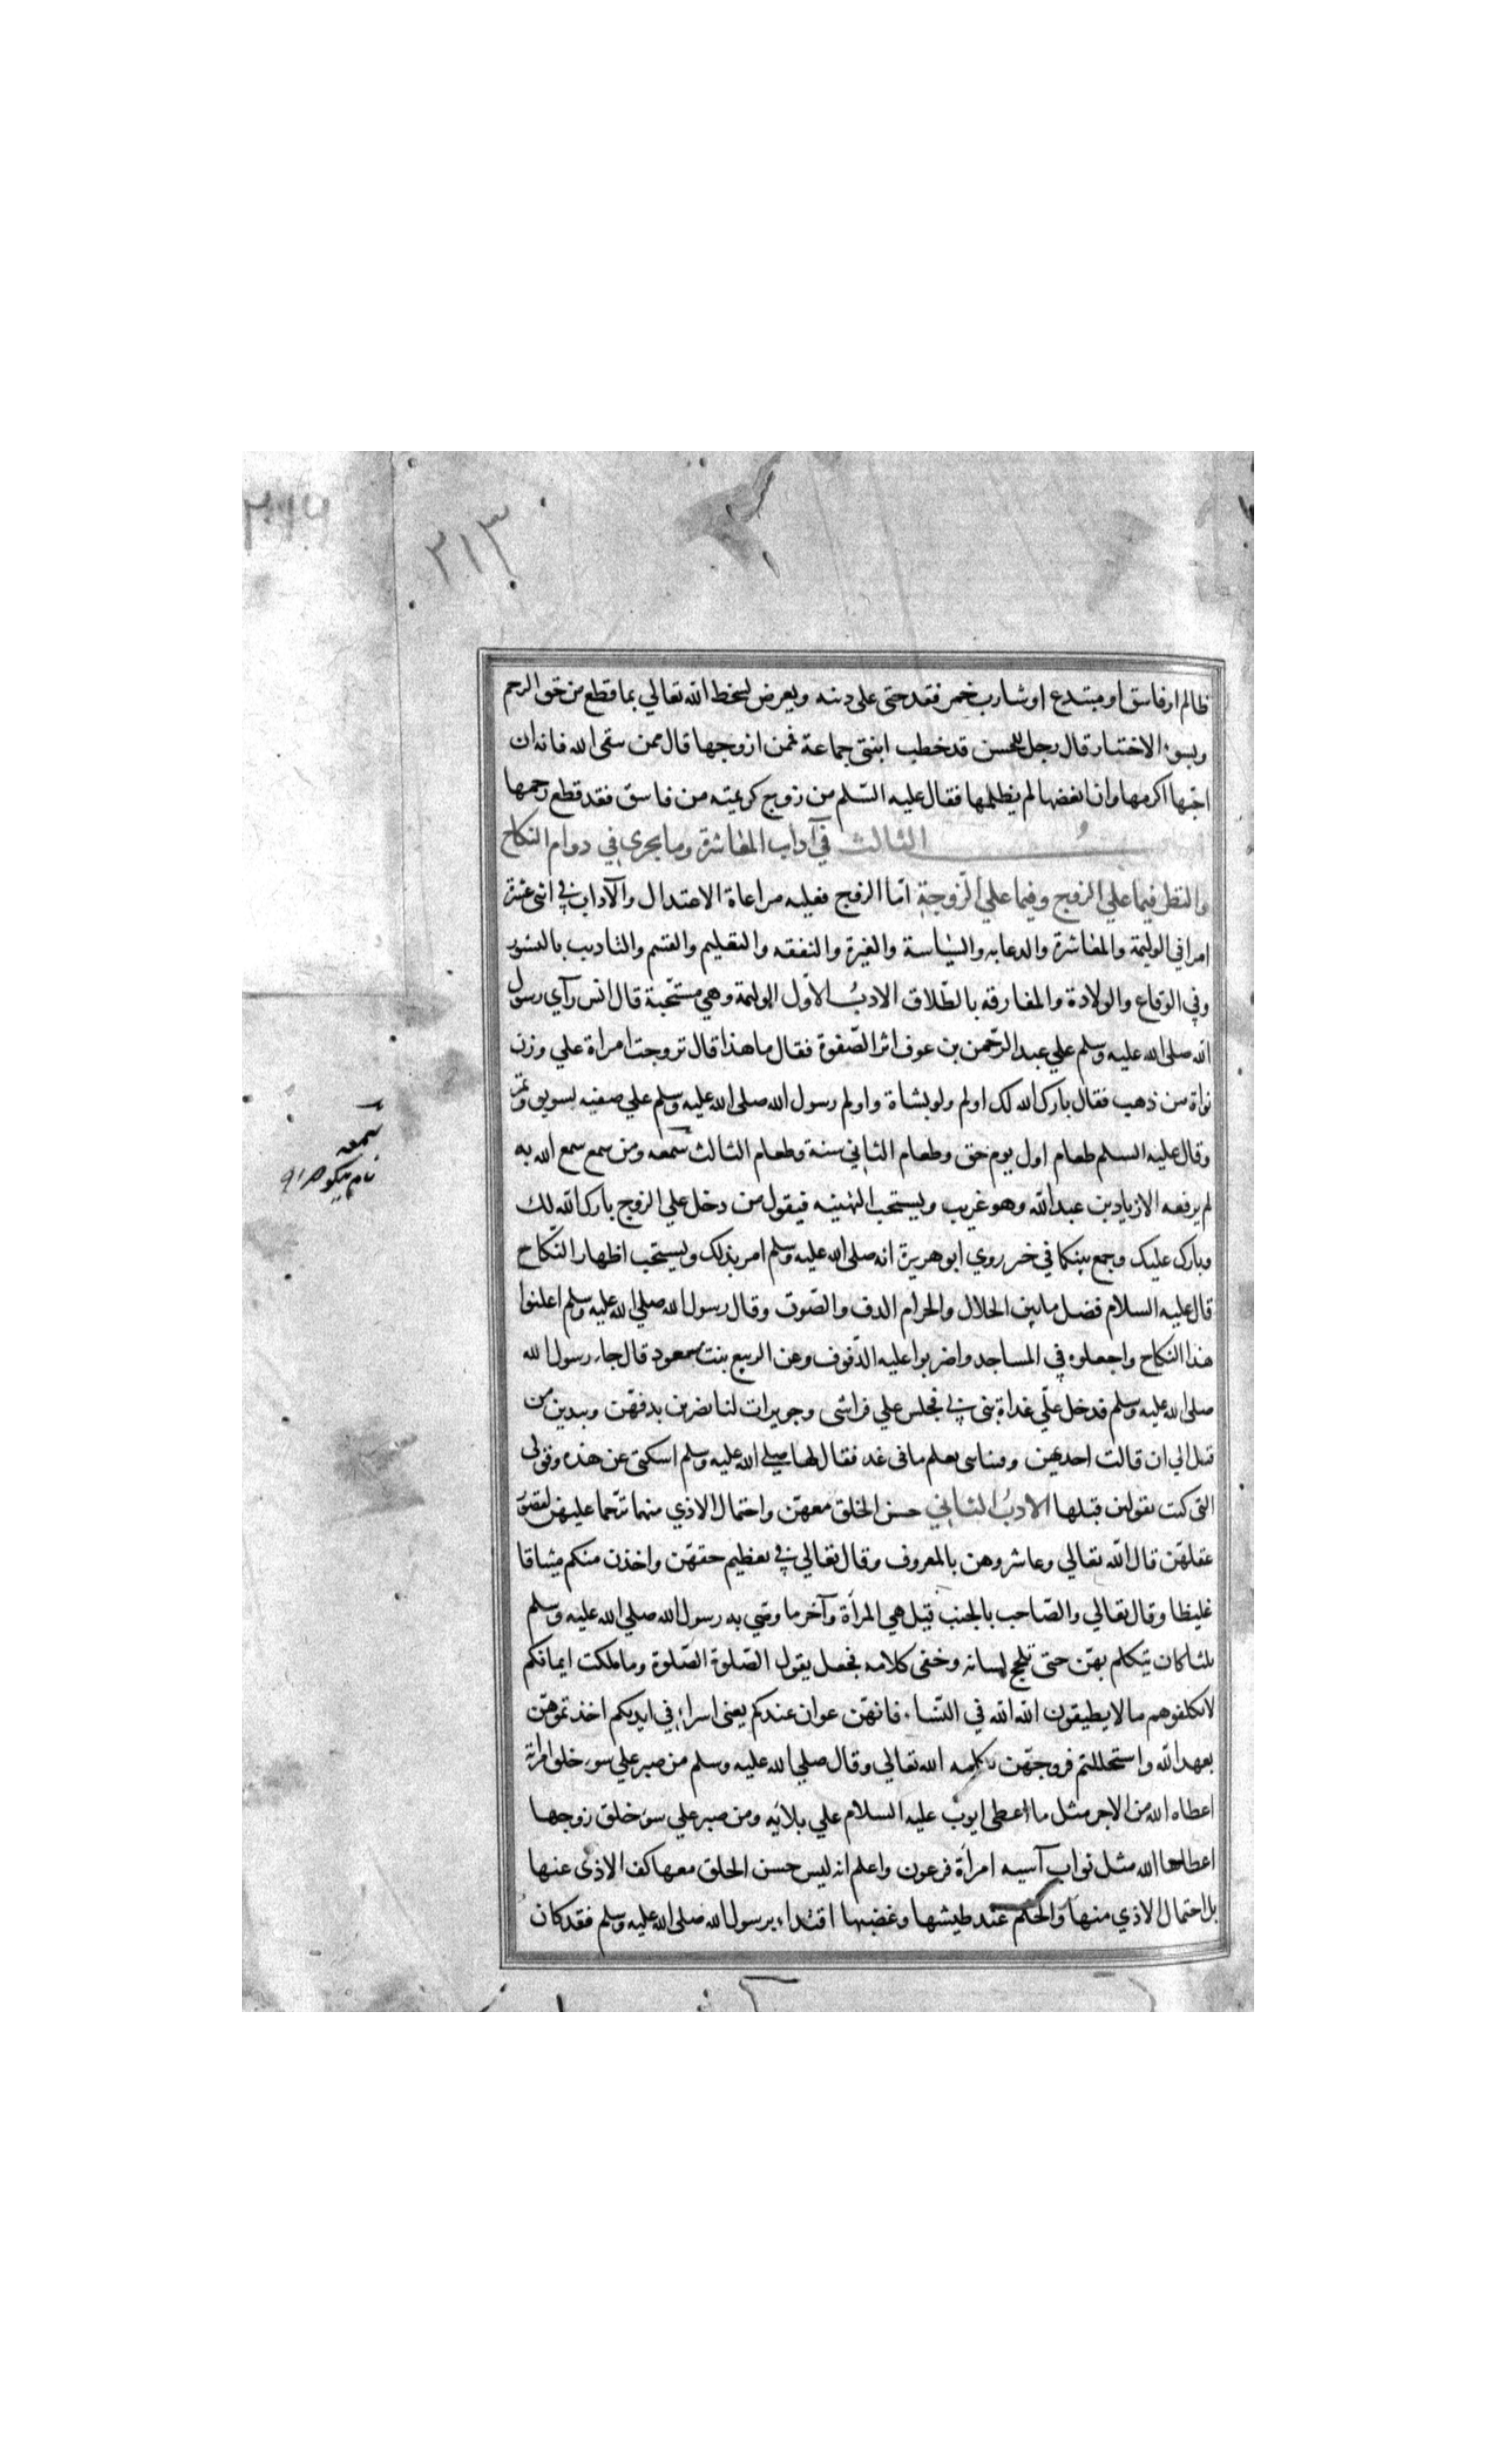 ٣١٣
ظالم او فاسق او مبتدع او شارب خمر فقد جنى على دينه وبعرض لسخط الله تعالي بما قطع من حق الرحم
وبسوء الاختيار قال رجل للحسن قد خطب ابنتي جماعة فمن ازوجها قال ممن يتقى الله فانه ان
احبها اكرمها وان ابغضها لم يظلمها فقال عليه السّلم من زوج كريمته من فاسق فقد قطع رحمها
الثالث في آداب المعاشرة وما يجرى في دوام النكاح
والنظر فيما علي الزوج وفيما علي الزوجة امّا الزوج فعليه مراعاة الاعتدال والآداب في اثنى عشرة
امرا في الوليمة والمعاشرة والدعابه والسّياسة والغيرة والنفقه والتعليم والقسم والتاديب بالنشوز
وفي الوقاع والولادة والمفارقه بالطّلاق الادبُ الاوّل الوليمة وهي مستحبة قال انس رآي رسول
الله صلى الله عليه وسلم علي عبد الرحمن بن عوف اثر الصّفرة فقال ما هذا قال تزوجت امراة علي وزن
نواة من ذهب فقال بارك الله لك اولم ولو بشاة واولم رسول الله صلى الله عليه وسلم علي صفيه بسويق وتمر
وقال عليه السلم طعام اول يوم حق وطعام الثاني سنة وطعام الثالث سمعه ومن سمع سمع الله به
لم يرفعه الا زياد بن عبد الله وهو غريب ويستحب التهنيه فيقول من دخل علي الزوج بارك الله لك
وبارك عليك وجمع بينكما في خير روي ابو هريرة انه صلى الله عليه وسلم امر بذلك ويستحب اظهار النكاح
قال عليه السلام فضل مابين الحلال والحرام الدف والصّوت وقال رسول الله صلي الله عليه وسلم اعلنوا
هذا النكاح واجعلوه في المساجد واضربوا عليه الدّفوف وعن الربيع بنت معود قال جاء رسول الله
صلى الله عليه وسلم فدخل علّي غداة بنى بي فجلس علي فراشى وجويرات لنا يضربن بدفهّن ويبدين من
قتل الي ان قالت احديهن وفينا نبى يعلم ما فى غد فقال لها صلى الله عليه وسلم اسكتى عن هذه وقولى
التى كنت تقولين قبلها الادبُ الثاني حسن الخلق معهن واحتمال الاذي منها ترّحما عليهن لقصور
عقلهّن قال الله تعالي وعاشروهن بالمعروف وقال تعالي في تعظيم حقهّن واخذن منكم ميثاقا
غليظا وقال تعالي والصّاحب بالجنب قيل هي المرأة وآخر ما وصّي به رسول الله صلي الله عليه وسلم
ثلثا كان يتكلم بهّن حتى تلجلج لسانه وخفى كلامه فجعل يقول الصّلوة الصّلوة وما ملكت ايمانكم
لا تكلفوهم ما لا يطيقون الله الله في النسّاء فانهّن عوان عندكم يعنى اسراء في ايديكم اخذتموهّن
بعهد الله واستحللتم فروجهّن بكلمه الله تعالي وقال صلي الله عليه وسلم من صبر علي سوء خلق امراة
اعطاه الله من الاجر مثل ما اعطى ايوب عليه السلام علي بلائه ومن صبر علي سوء خلق زوجها
اعطاها الله مثل ثواب آسيه امراة فرعون واعلم انه ليس حسن الخلق معها كف الاذى عنها
بل احتمال الاذي منها والحلم عند طيشها وغضبها اقتداء برسول الله صلى الله عليه وسلم فقد كان
سمعه